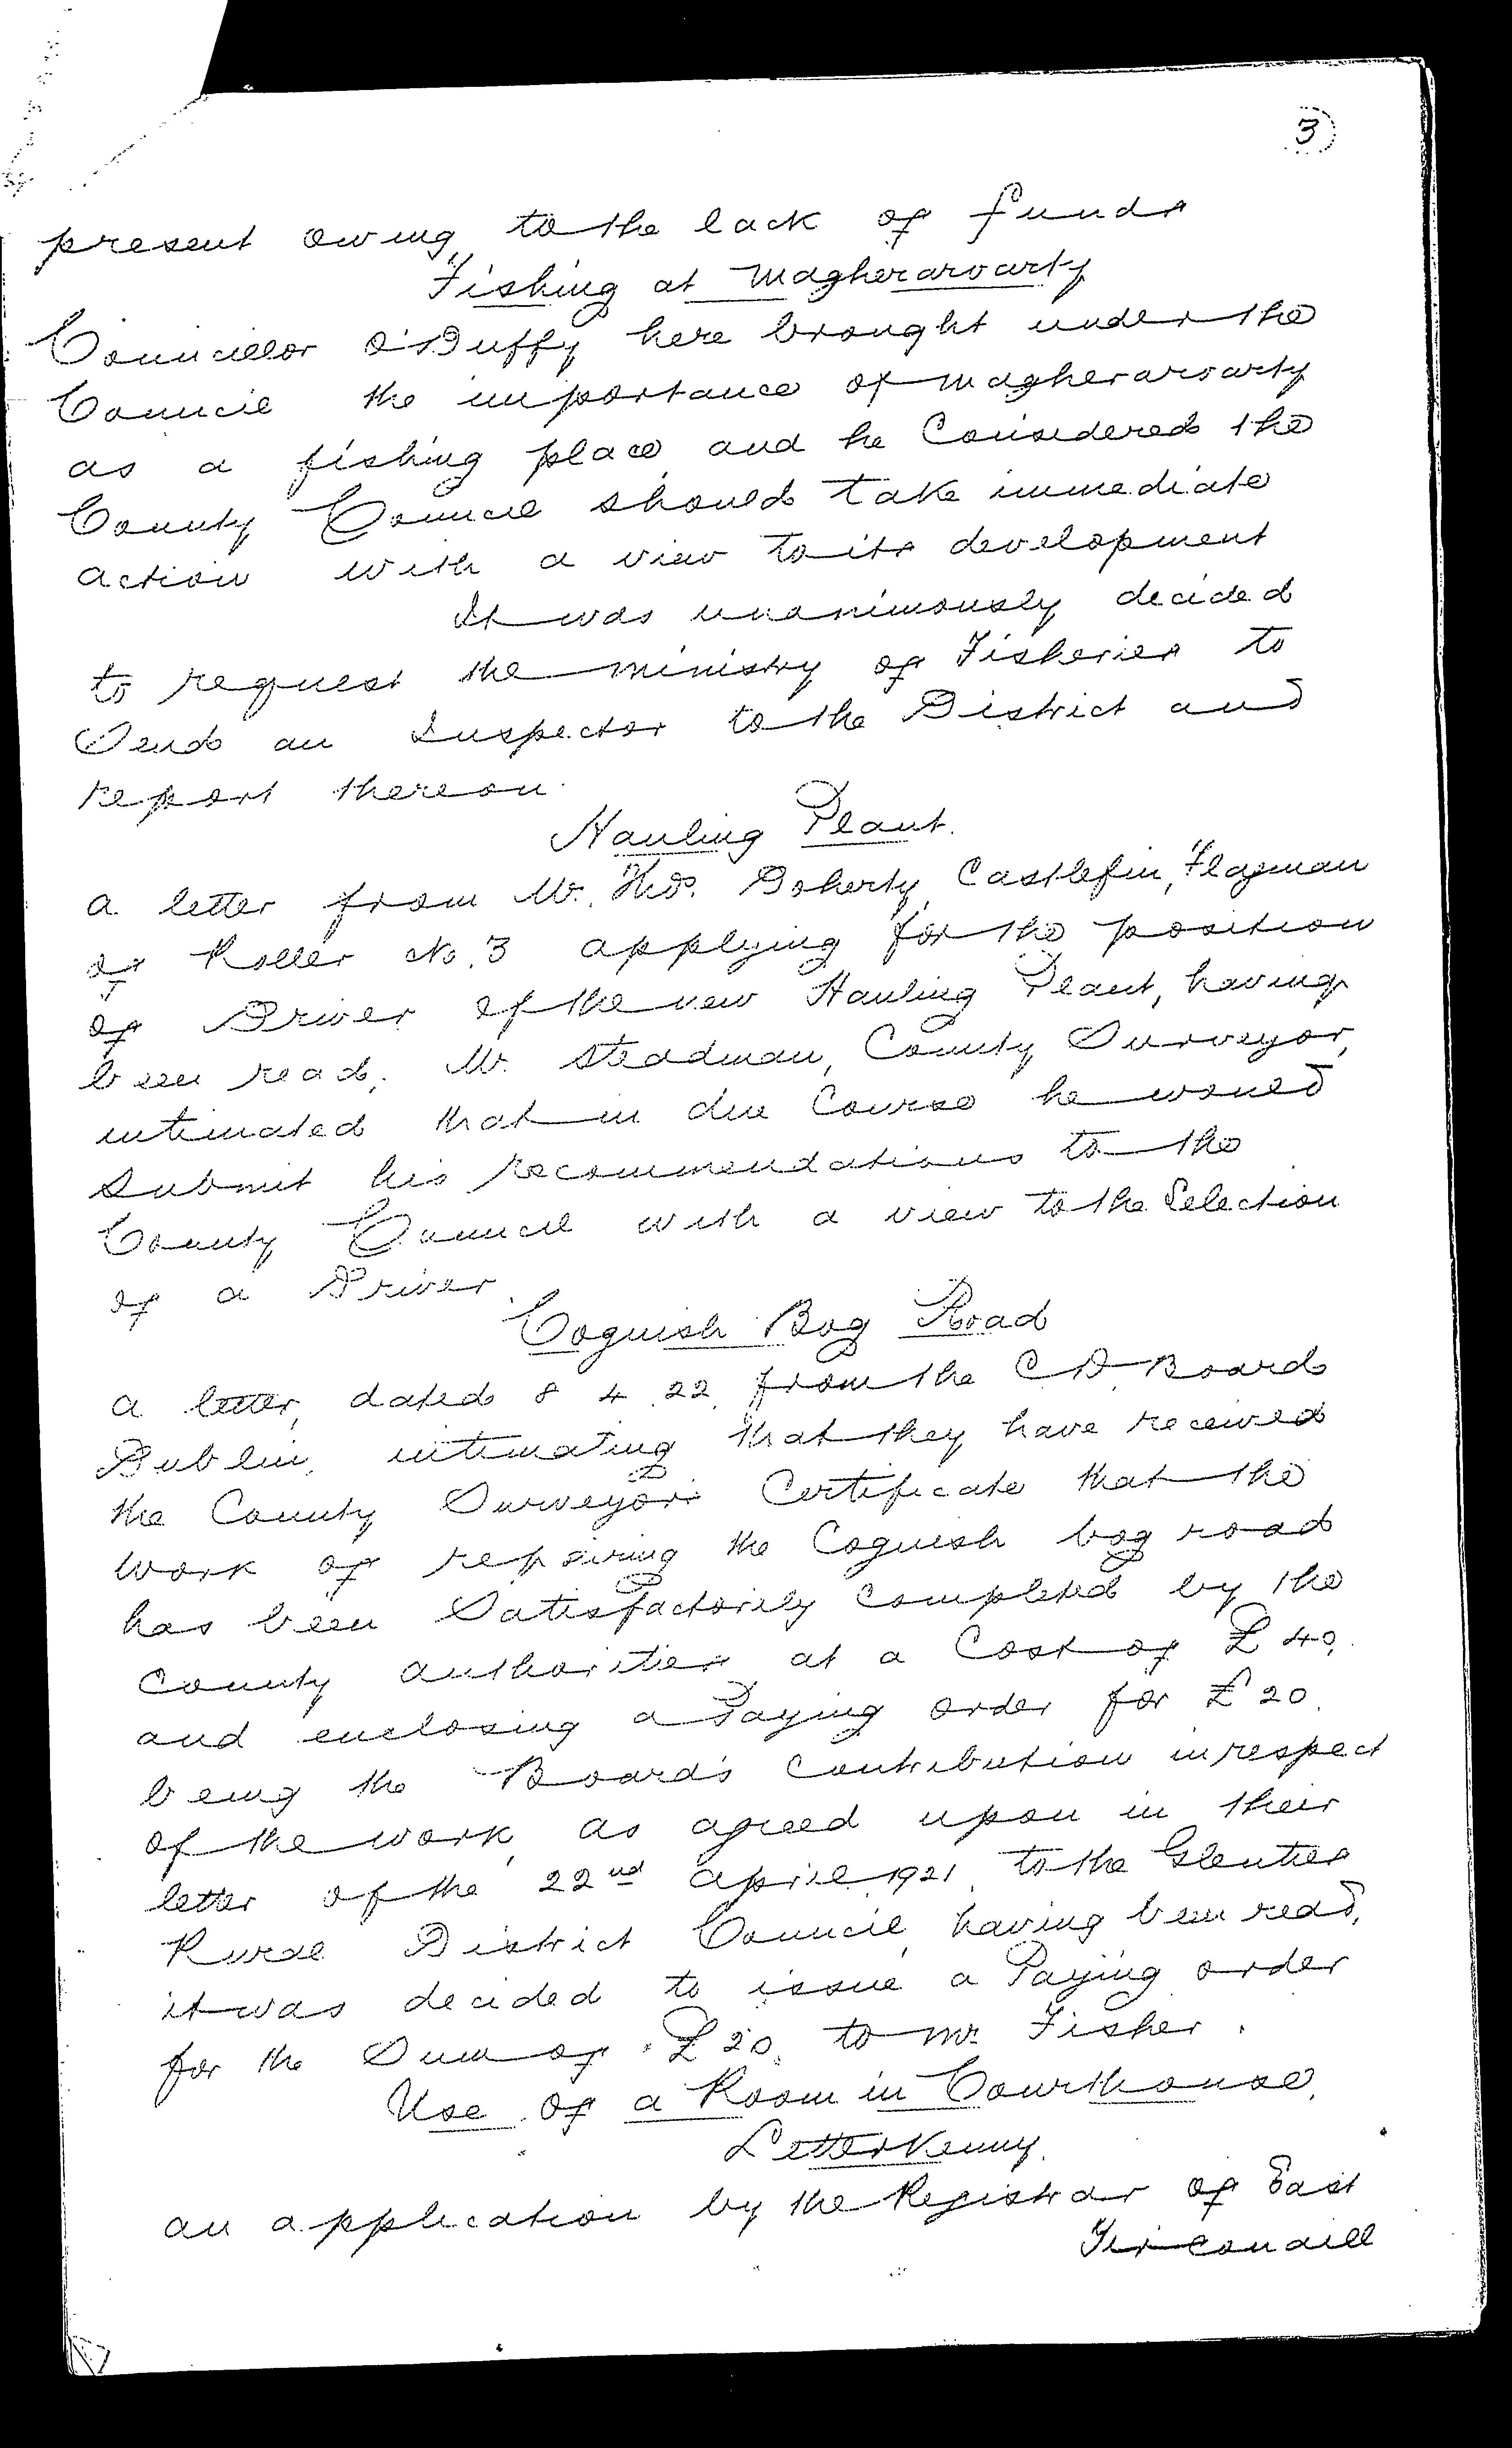 3
present owing to the lack of funds
Fishing at Magheraroarty
Councillor O'Duffy here brought under the
Council the importance of Magheraroarty
as a fishing place and he Considered the
County Council should take immediate
action with a view to its development
It was unanimously decided
to request the Ministry of Fisheries to
Send an Inspector to the District and
report thereon.
Hauling Plant.
a letter from Mr. Thos. Doherty, Castlefin, Flagman
of Roller No. 3 applying for the position
of Driver of the new Hauling Plant, having
been read, Mr. Steadman, County Surveyor,
intimated that in due Course he would
submit his recommendations to the
County Council with a view to the Selection
of a Driver.
Coguish Bog Road
a letter, dated 8 4 22, from the C D Board
Dublin, intimating that they have received
the County Surveyors Certificate that the
work of repairing the Coguish bog road
has been Satisfactorily completed by the
County authorities at a Cost of £40,
and enclosing a Paying order for £20.
being the Board's Contribution in respect
of the work, as agreed upon in their
letter of the 22nd April 1921, to the Glenties
Rural District Council, having been read,
it was decided to issue a Paying order
for the Sum of £20, to Mr. Fisher.
Use of a Room in Courthouse,
Letterkenny.
an application by the Registrar of East
Tirconaill